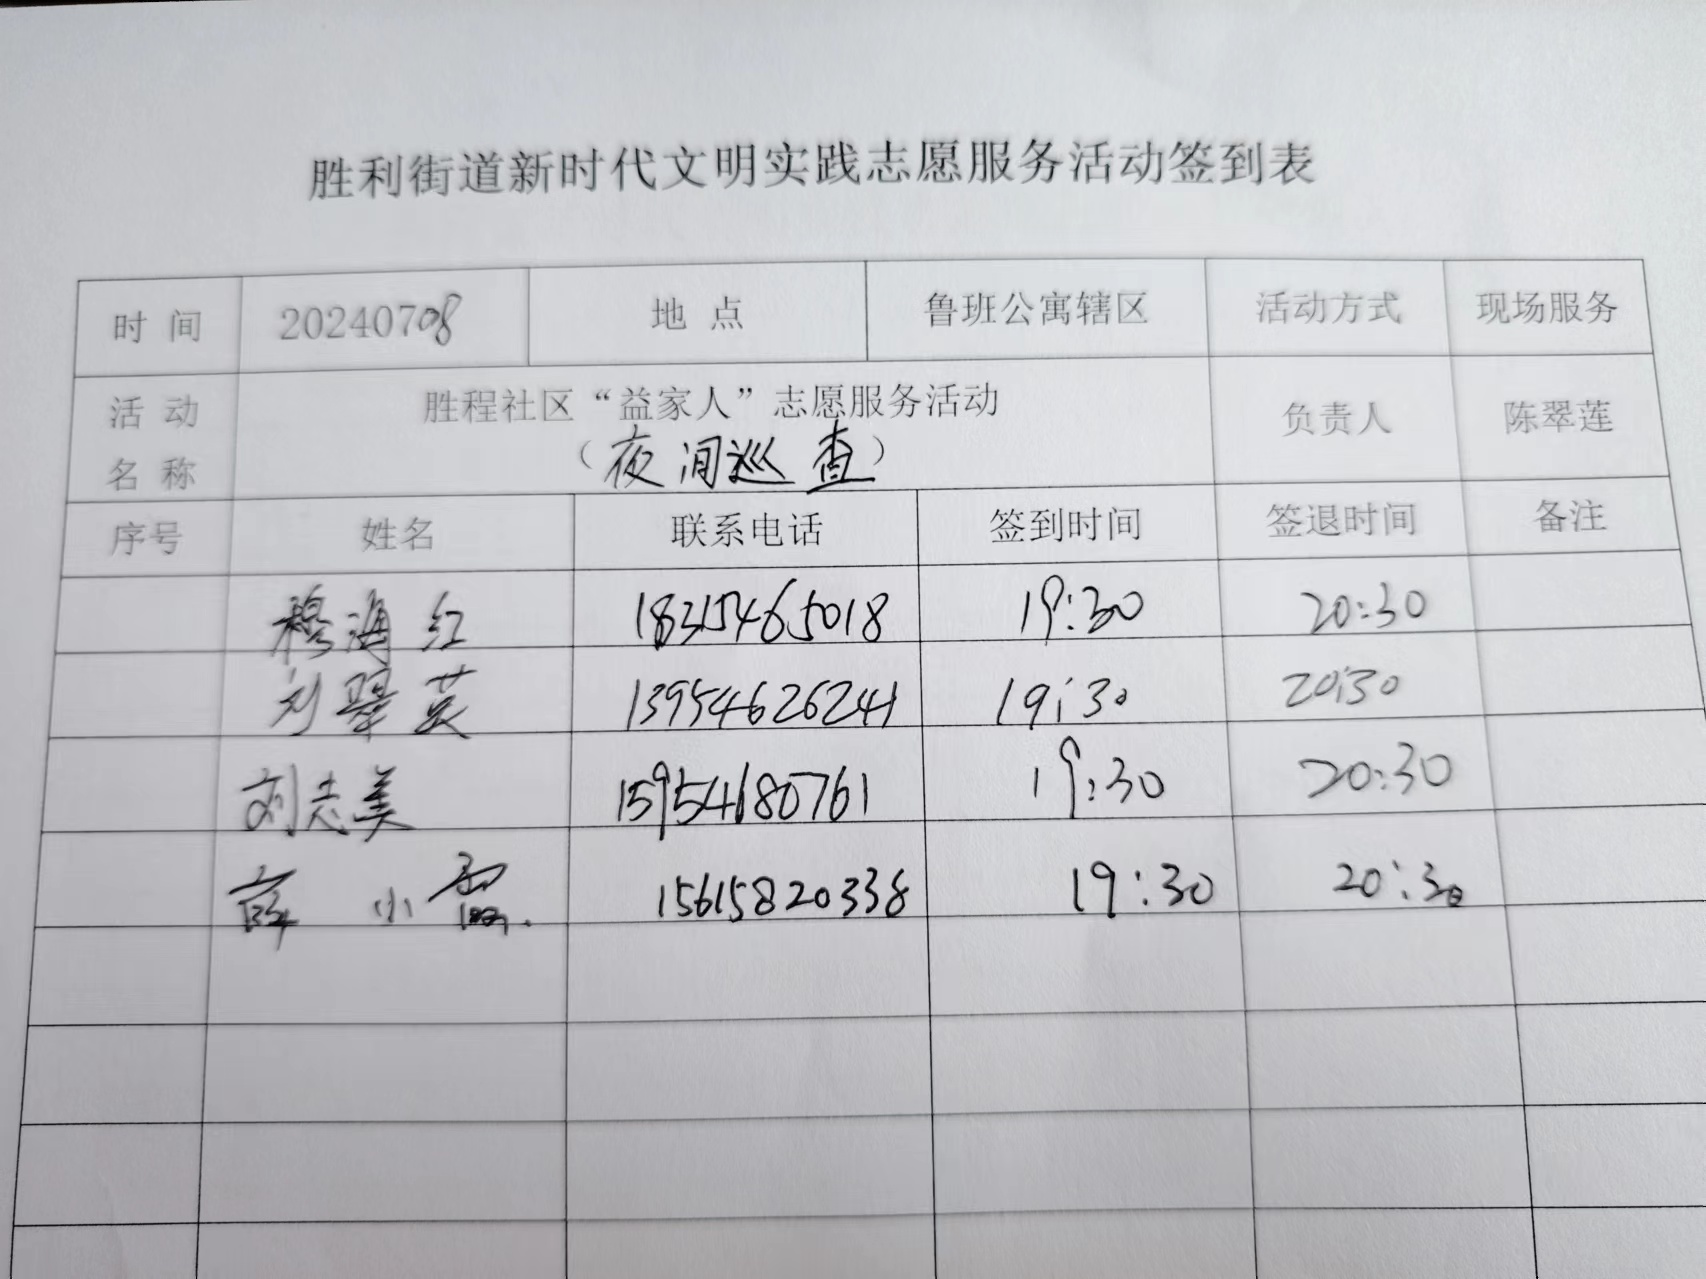 胜利街道新时代文明实践志愿服务活动签到表
时 间 20240708 地 点 鲁班公寓辖区 活动方式 现场服务
活 动 名 称 胜程社区“益家人”志愿服务活动 负责人 陈翠莲
（夜间巡查）
序号 姓名 联系电话 签到时间 签退时间 备注
穆海红 18315465018 19:30 20:30
刘翠英 13954626241 19:30 20:30
刘志美 15954680761 19:30 20:30
薛小霞 15615820338 19:30 20:30